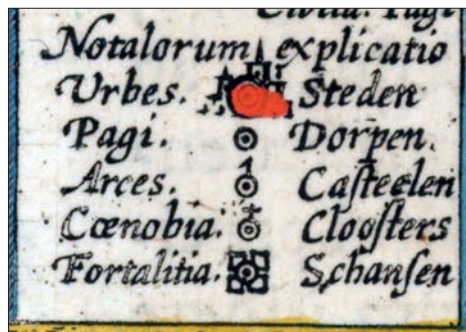 Notalorum explicatio
Urbes. Steden
Pagi. Dorpen.
Arces. Casteelen
Cœnobia. Cloosters
Fortalitia. Schansen